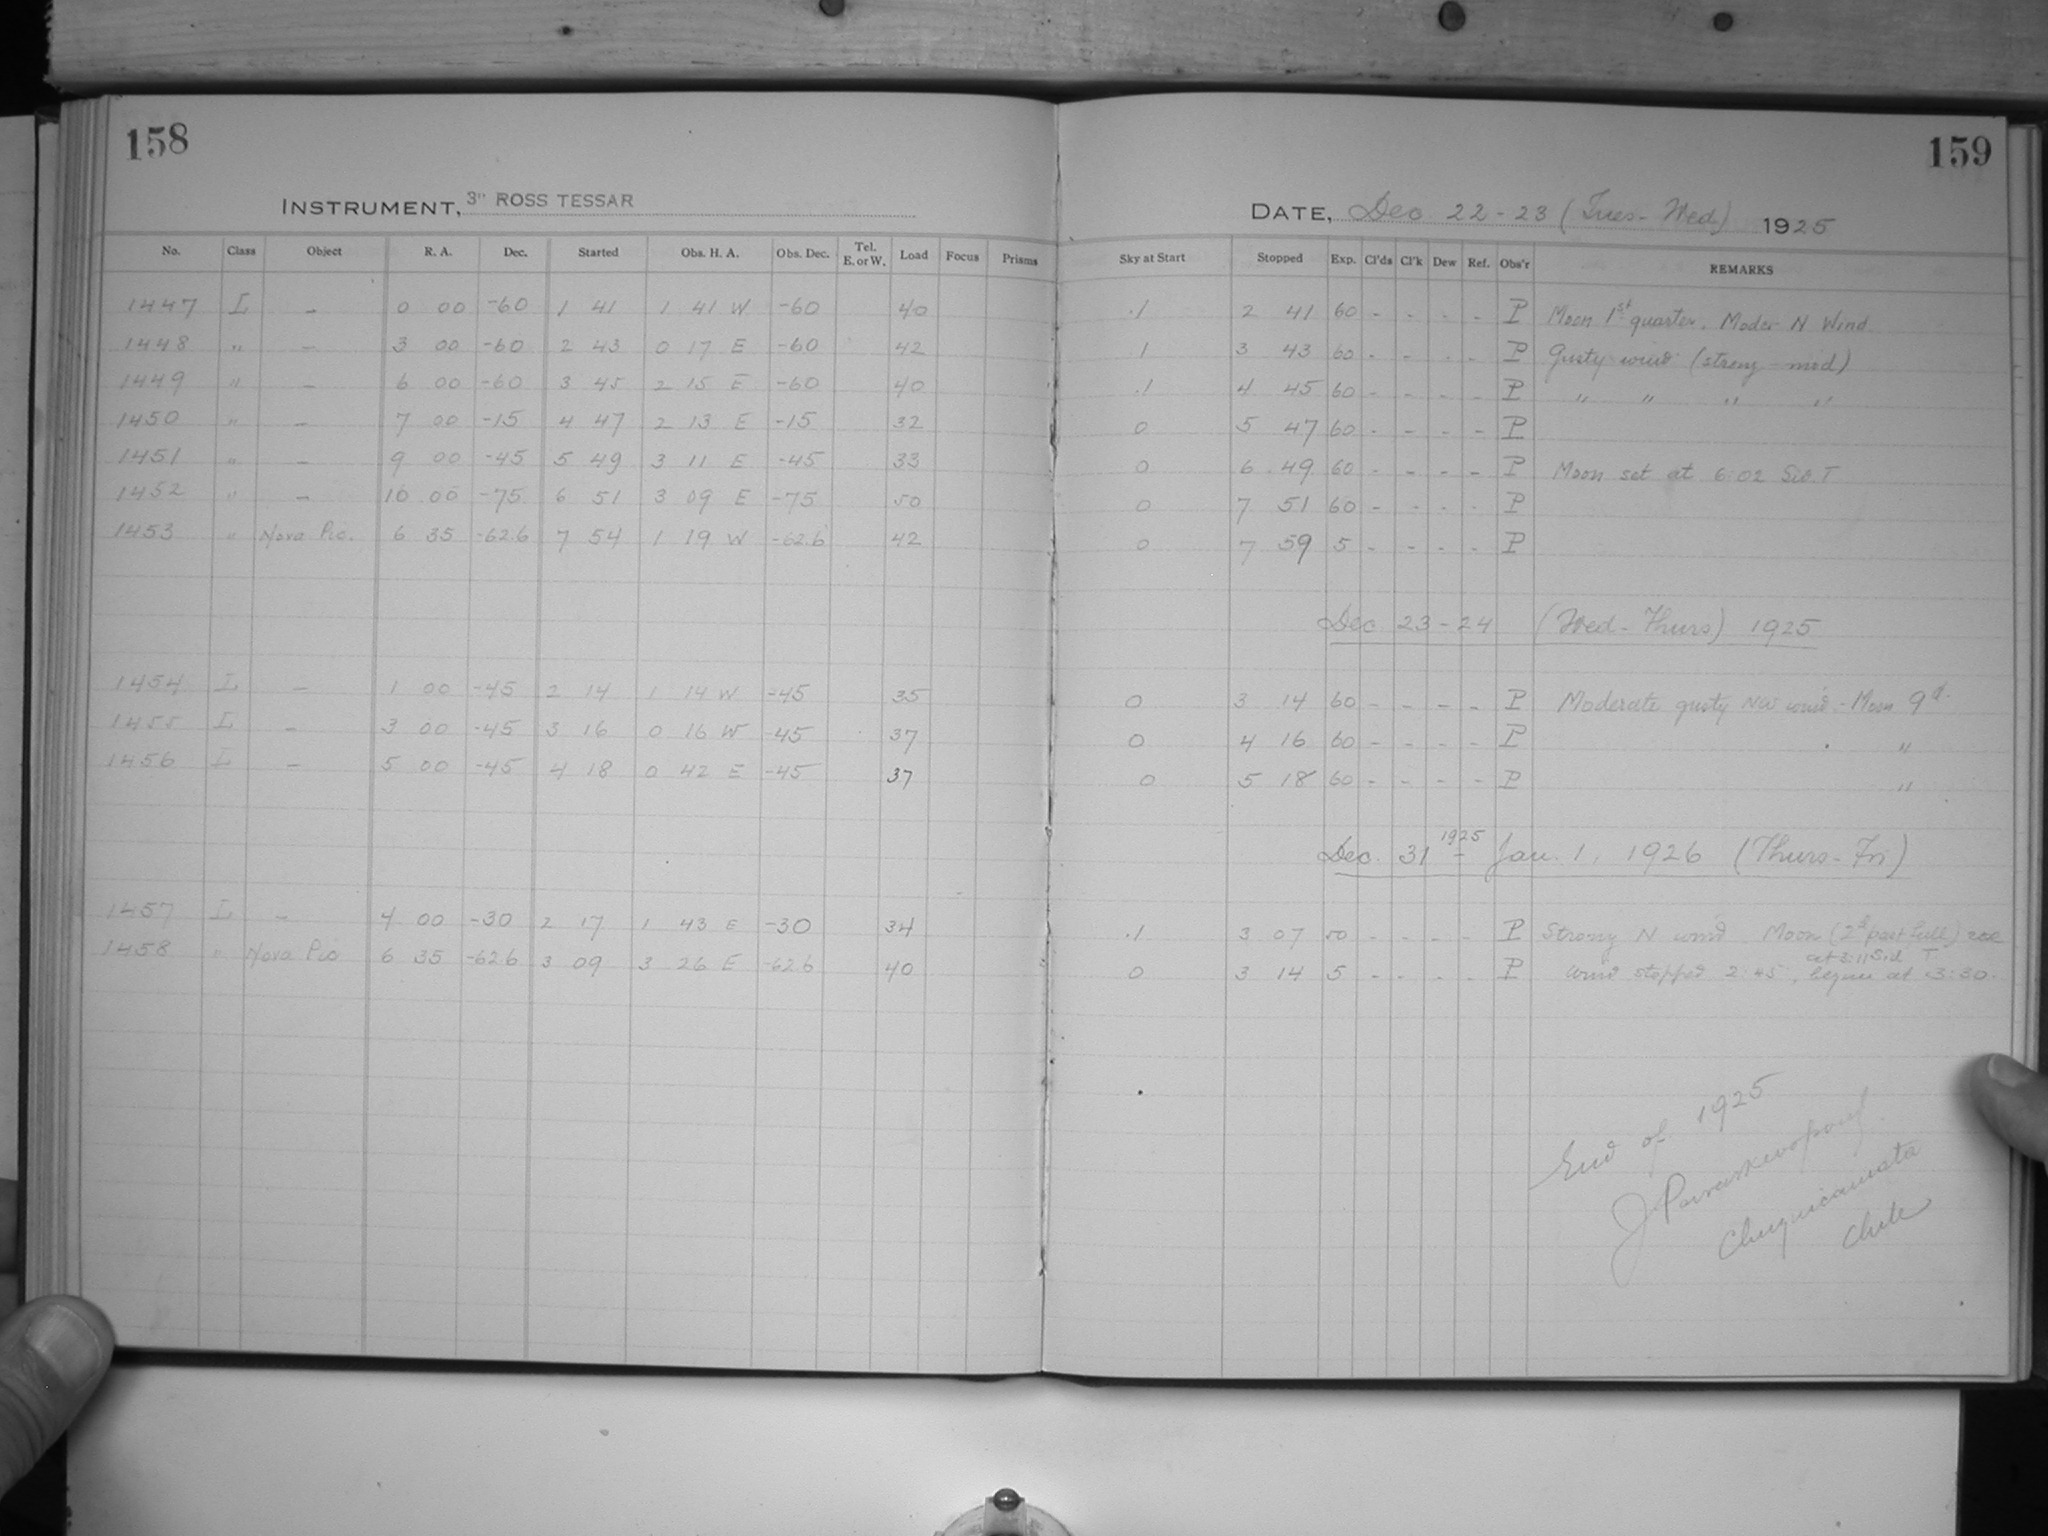 158
INSTRUMENT, 3" ROSS TESSAR
No. Class Object R. A. Dec. Started Obs. H. A. Obs. Dec. Tel. E. or W. Load Focus Prisms
1447 L - 0 00 -60 1 41 1 41 W -60 40
1448 " - 3 00 -60 2 43 0 17 E -60 42
1449 " - 6 00 -60 3 45 2 15 E -60 40
1450 " - 7 00 -15 4 47 2 13 E -15 32
1451 " - 9 00 -45 5 49 3 11 E -45 33
1452 " - 10 00 -75 6 51 3 09 E -75 50
1453 " Nova Pic. 6 35 -62.6 7 54 1 19 W -62.6 42
1454 L - 1 00 -45 2 14 1 14 W -45 35
1455 L - 3 00 -45 3 16 0 16 W -45 37
1456 L - 5 00 -45 4 18 0 42 E -45 37
1457 L - 4 00 -30 2 17 1 43 E -30 34
1458 " Nova Pic 6 35 -62.6 3 09 3 26 E -62.6 40
159
DATE, Dec 22-23 (Tues-Wed) 1925
Sky at Start Stopped Exp. Cl'ds Cl'k Dew Ref. Obs'r REMARKS
.1 2 41 60 - - - - P Moon 1st quarter. Moder N Wind
1 3 43 60 - - - - P Gusty wind (strong-mod)
.1 4 45 60 - - - - P " " " "
0 5 47 60 - - - - P
0 6 49 60 - - - - P Moon set at 6:02 Sid. T
0 7 51 60 - - - - P
0 7 59 5 - - - - P
Dec 23-24 (Wed-Thurs) 1925
0 3 14 60 - - - - P Moderate gusty NW wind - Moon 9d.
0 4 16 60 - - - - P "
0 5 18 60 - - - - P "
Dec. 31 1925 - Jan. 1, 1926 (Thurs-Fri)
.1 3 07 50 - - - - P Strong N wind Moon (2d past full) rose
at 3:11 Sid T
0 3 14 5 - - - - P Wind stopped 2:45, begun at 3:30.
End of 1925
J Paraskevopoulos
Chuquicamata
Chile